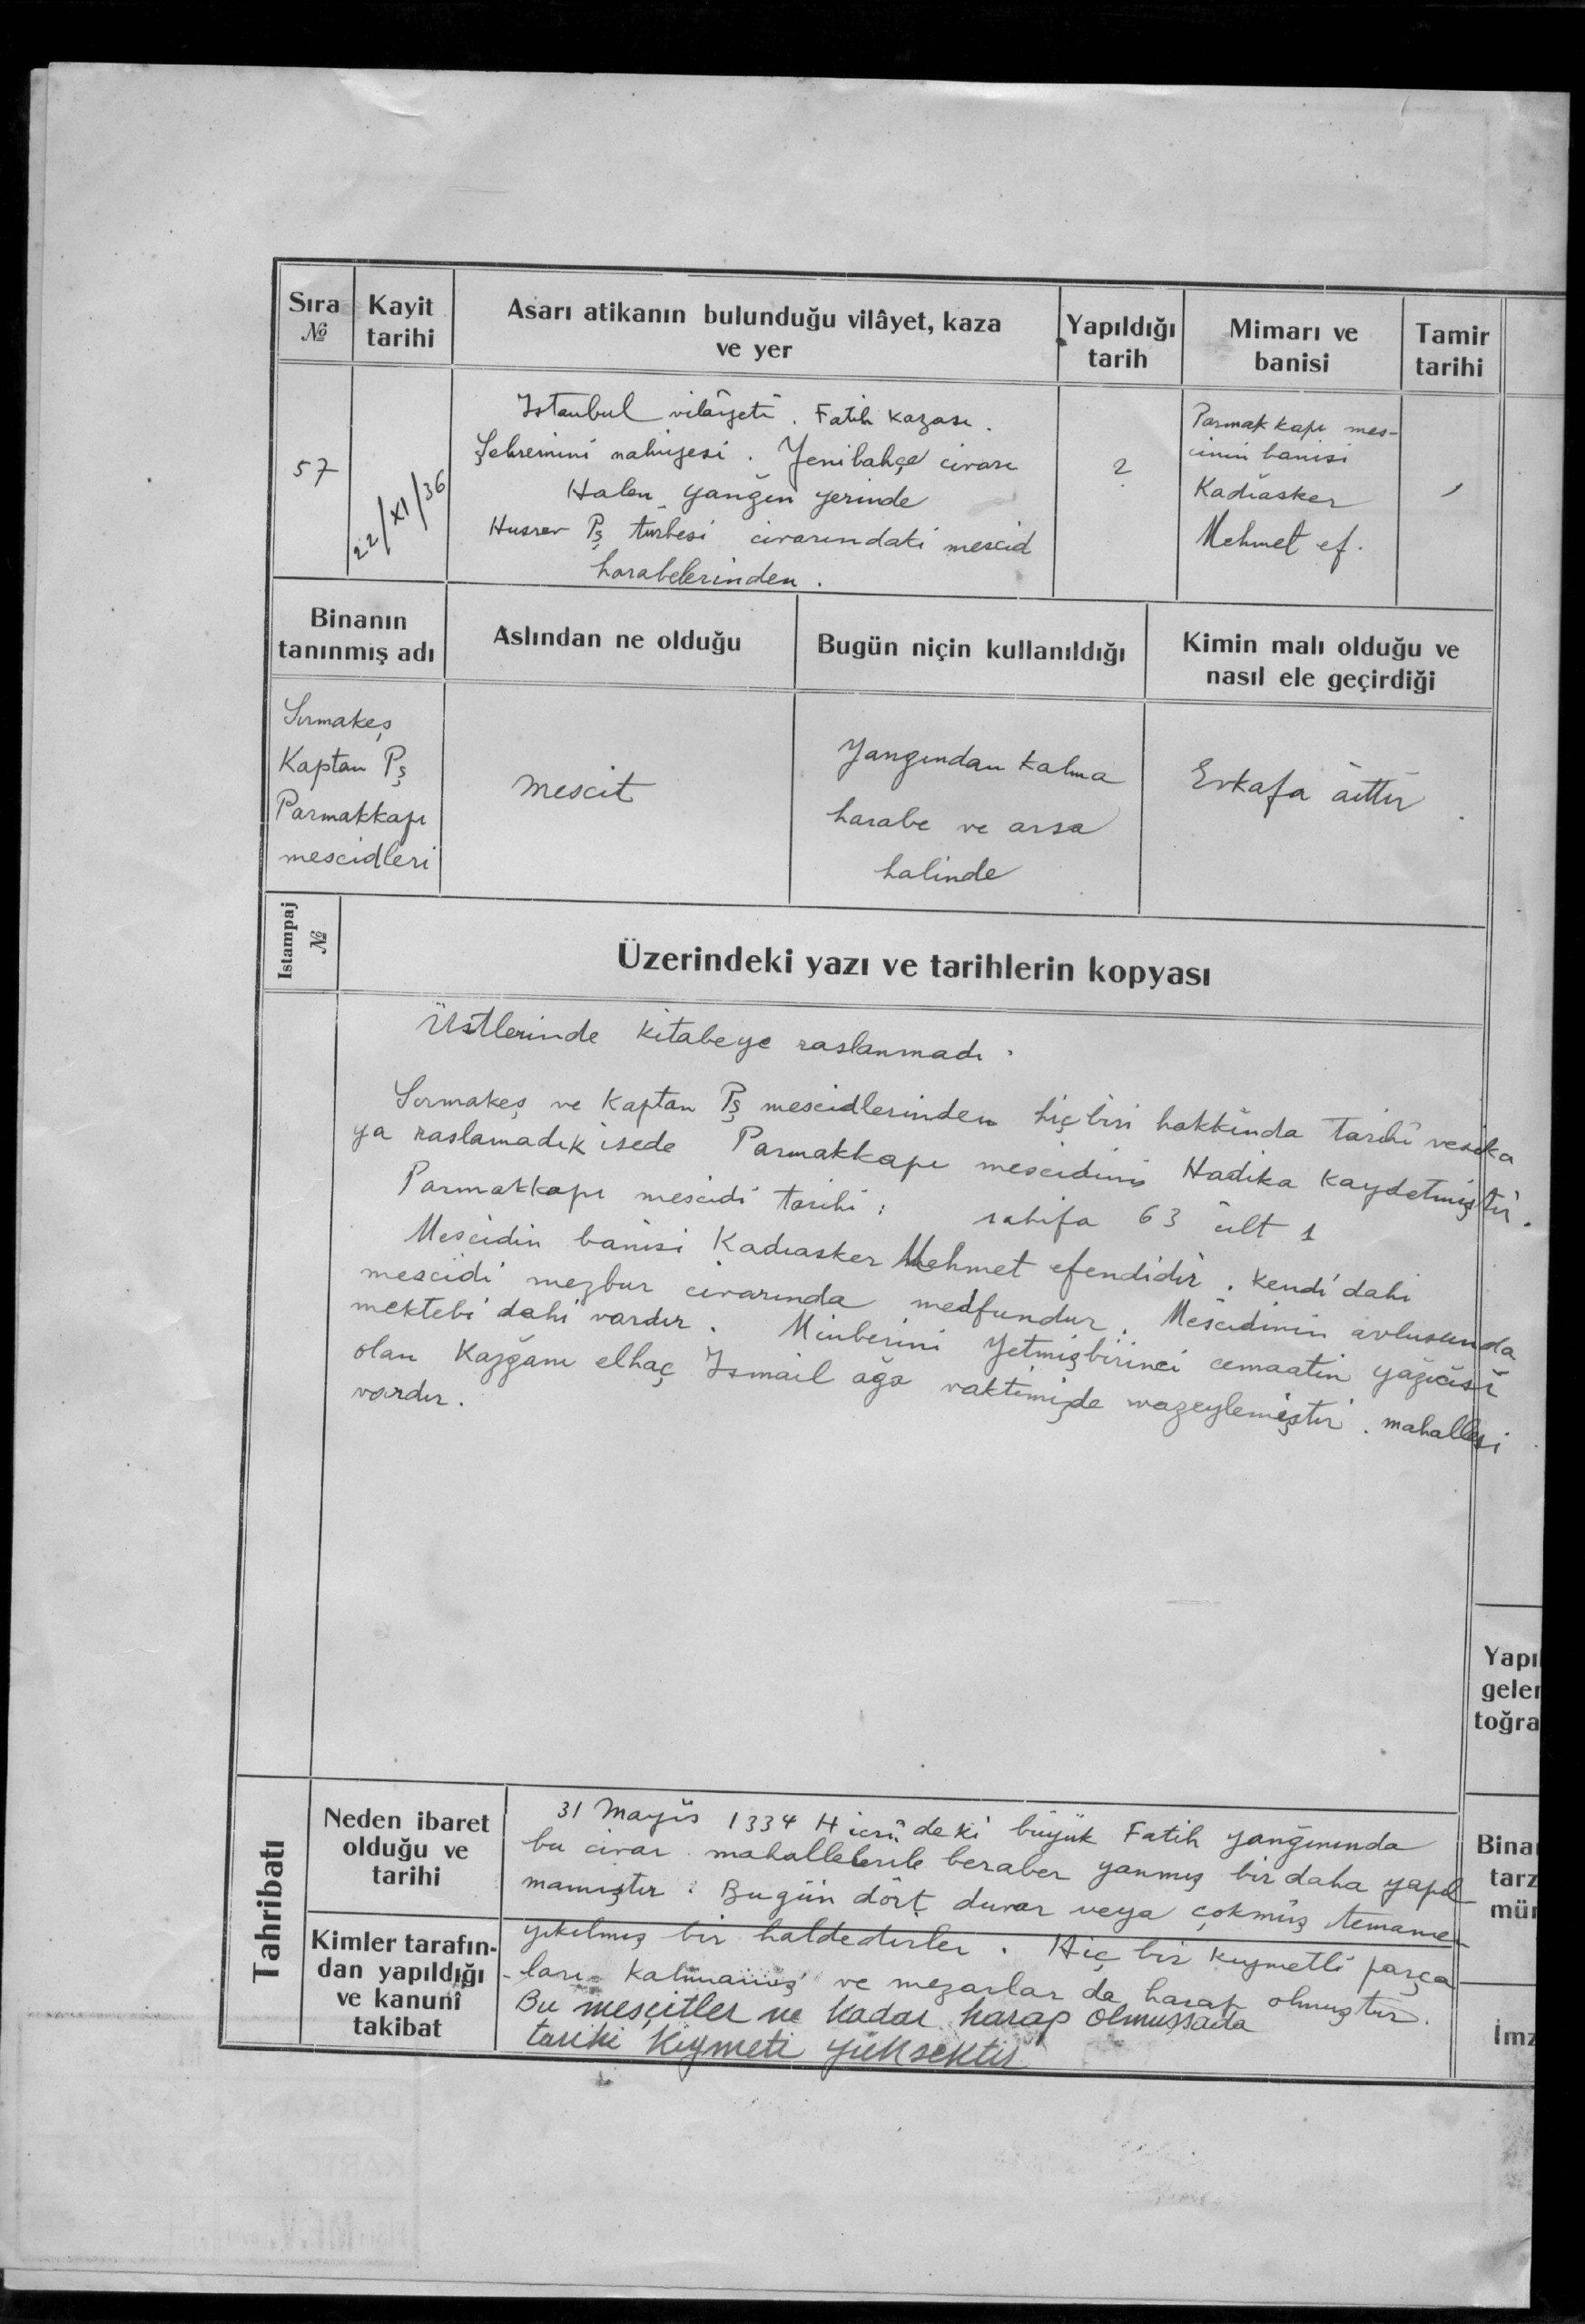 Sıra № Kayit tarihi Asarı atikanın bulunduğu vilâyet, kaza ve yer Yapıldığı tarih Mimarı ve banisi Tamir tarihi
57
22/XI/36
Istanbul vilâyeti . Fatih kazası .
Şehremini nahiyesi . Yenibahçe civarı
Halen yangın yerinde
Husrev Pş türbesi civarındaki mescid
harabelerinden .
?
Parmak kapı mes-
cinin banisi
Kadıasker
Mehmet ef.
Binanın tanınmış adı
Aslından ne olduğu
Bugün niçin kullanıldığı
Kimin malı olduğu ve nasıl ele geçirdiği
Sırmakeş
Kaptan Pş
Parmakkapı
mescidleri
mescit
Yangından kalma
harabe ve arsa
halinde
Evkafa aittir .
Istampaj №
Üzerindeki yazı ve tarihlerin kopyası
Üstlerinde kitabeye raslanmadı .
Sırmakeş ve Kaptan Pş mescidlerinden hiç biri hakkında tarihî vesika
ya raslamadık isede Parmakkapı mescidini Hadika kaydetmiştir .
Parmakkapı mescidi tarihi : sahifa 63 cilt 1
Mescidin banisi Kadıasker Mehmet efendidir . kendi dahi
mescidi mezbur civarında medfundur . Mescidinin avlusunda
mektebi dahi vardır . Minberini Yetmişbirinci cemaatin yazıcısı
olan Kazğanı elhaç Ismail ağa vaktimizde vazeylemiştir . mahallesi
vardır .
Yapıl
geler
toğra
Tahribatı
Neden ibaret olduğu ve tarihi
31 Mayıs 1334 Hicrî deki büyük Fatih yangınında
bu civar mahallelerile beraber yanmış bir daha yapıl
mamıştır . Bugün dört duvar veya çökmüş temame-
Kimler tarafın-
dan yapıldığı
ve kanunî
takibat
yıkılmış bir haldedirler . Hiç bir kıymetli parça
-ları kalmamış ve mezarlar da harap olmuştur .
Bu mesçitler ne kadar harap olmuşsada
tarihi kıymeti yüksektir
Binaı
tarz
mür
İmz